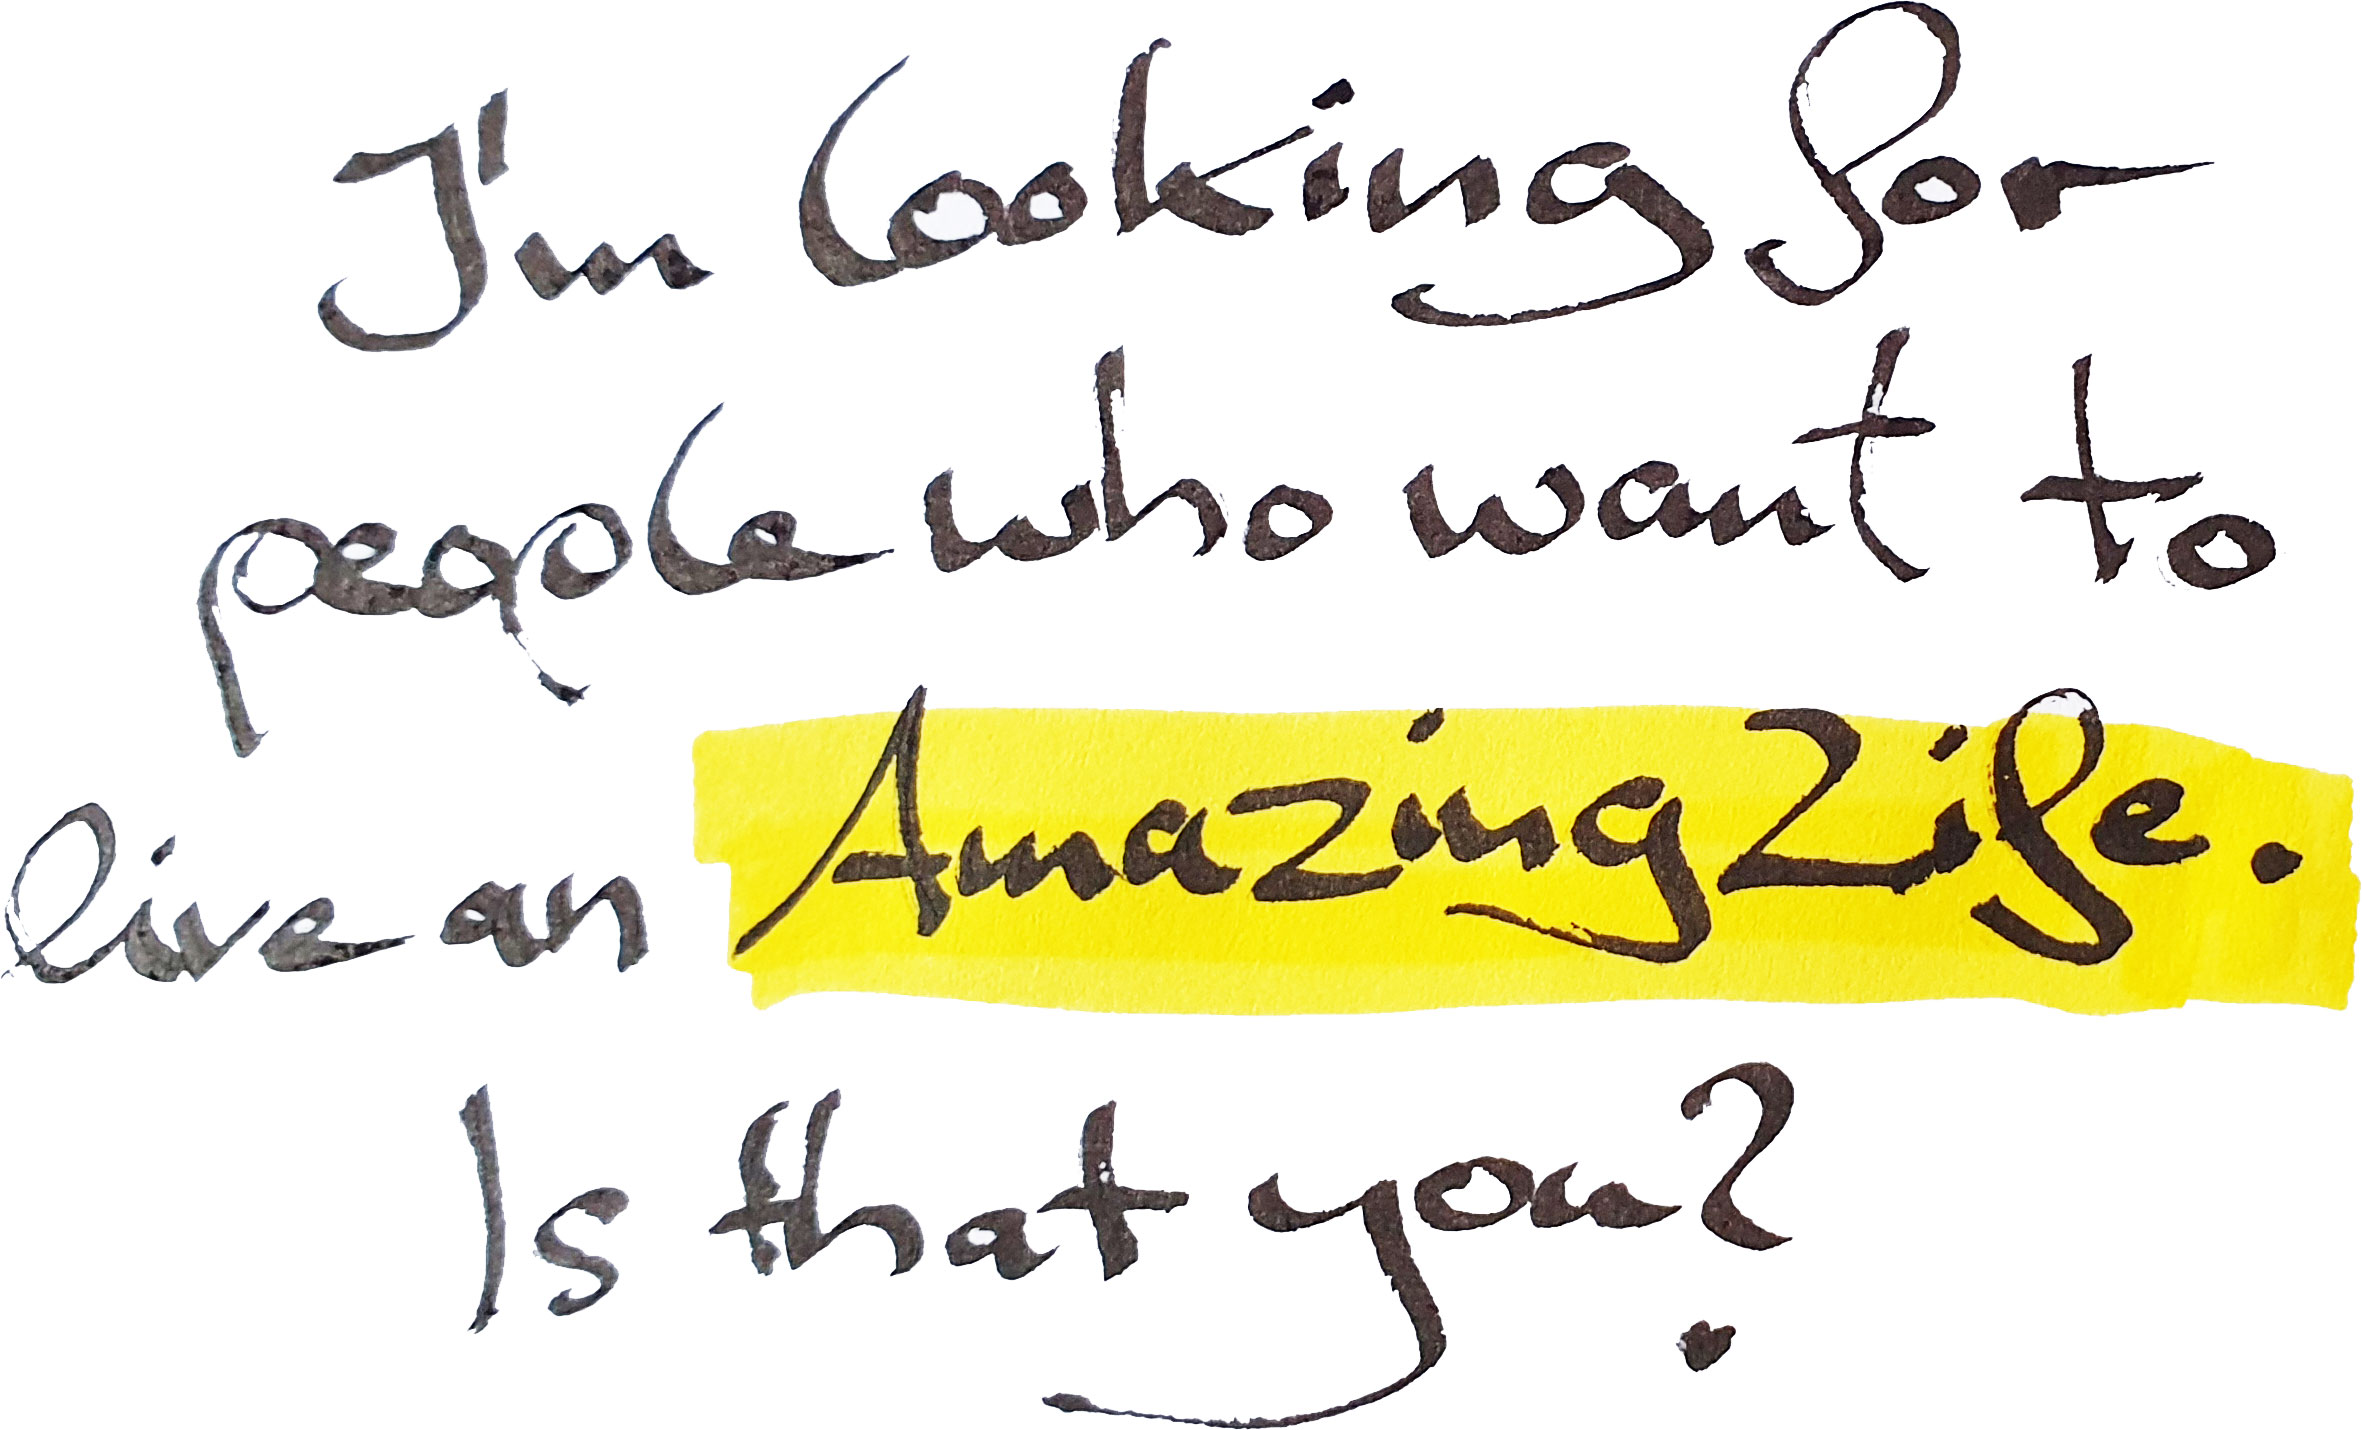 I'm looking for
people who want to
live an Amazing Life.
Is that you?